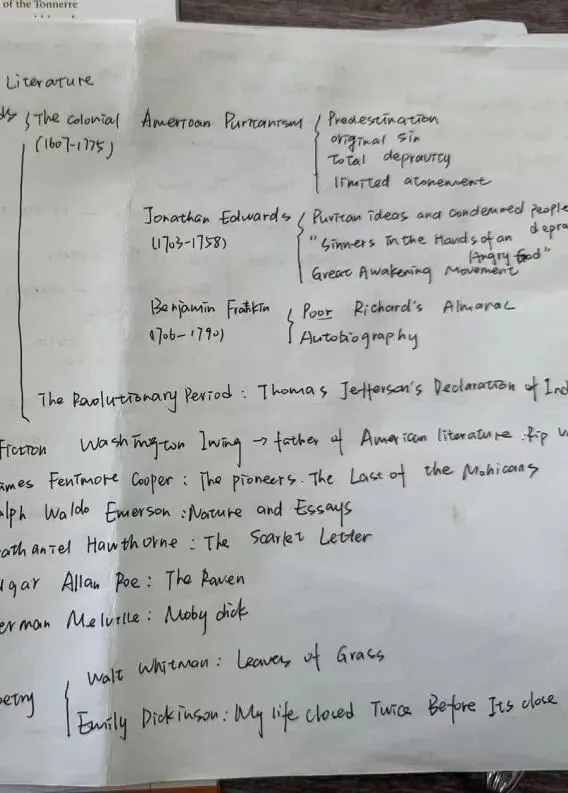 of the Tonnerre
Literature
{ The Colonial American Puritanism { Predestination
(1607-1775) original sin
total depravity
limited atonement
Jonathan Edwards { Puritan ideas and condemned people
(1703-1758) "Sinners In the Hands of an depra
Angry God"
Great Awakening Movement
Benjamin Franklin { Poor Richard's Almanac
(1706-1790) Autobiography
The Revolutionary Period : Thomas Jefferson's Declaration of Ind
Fiction Washington Irving → father of American literature. Rip V
ames Fenimore Cooper : The pioneers. The Last of the Mohicans
alph Waldo Emerson : Nature and Essays
athaniel Hawthorne : The Scarlet Letter
dgar Allan Poe : The Raven
erman Melville : Moby dick
oetry { Walt Whitman : Leaves of Grass
Emily Dickinson : My life closed Twice Before Its close